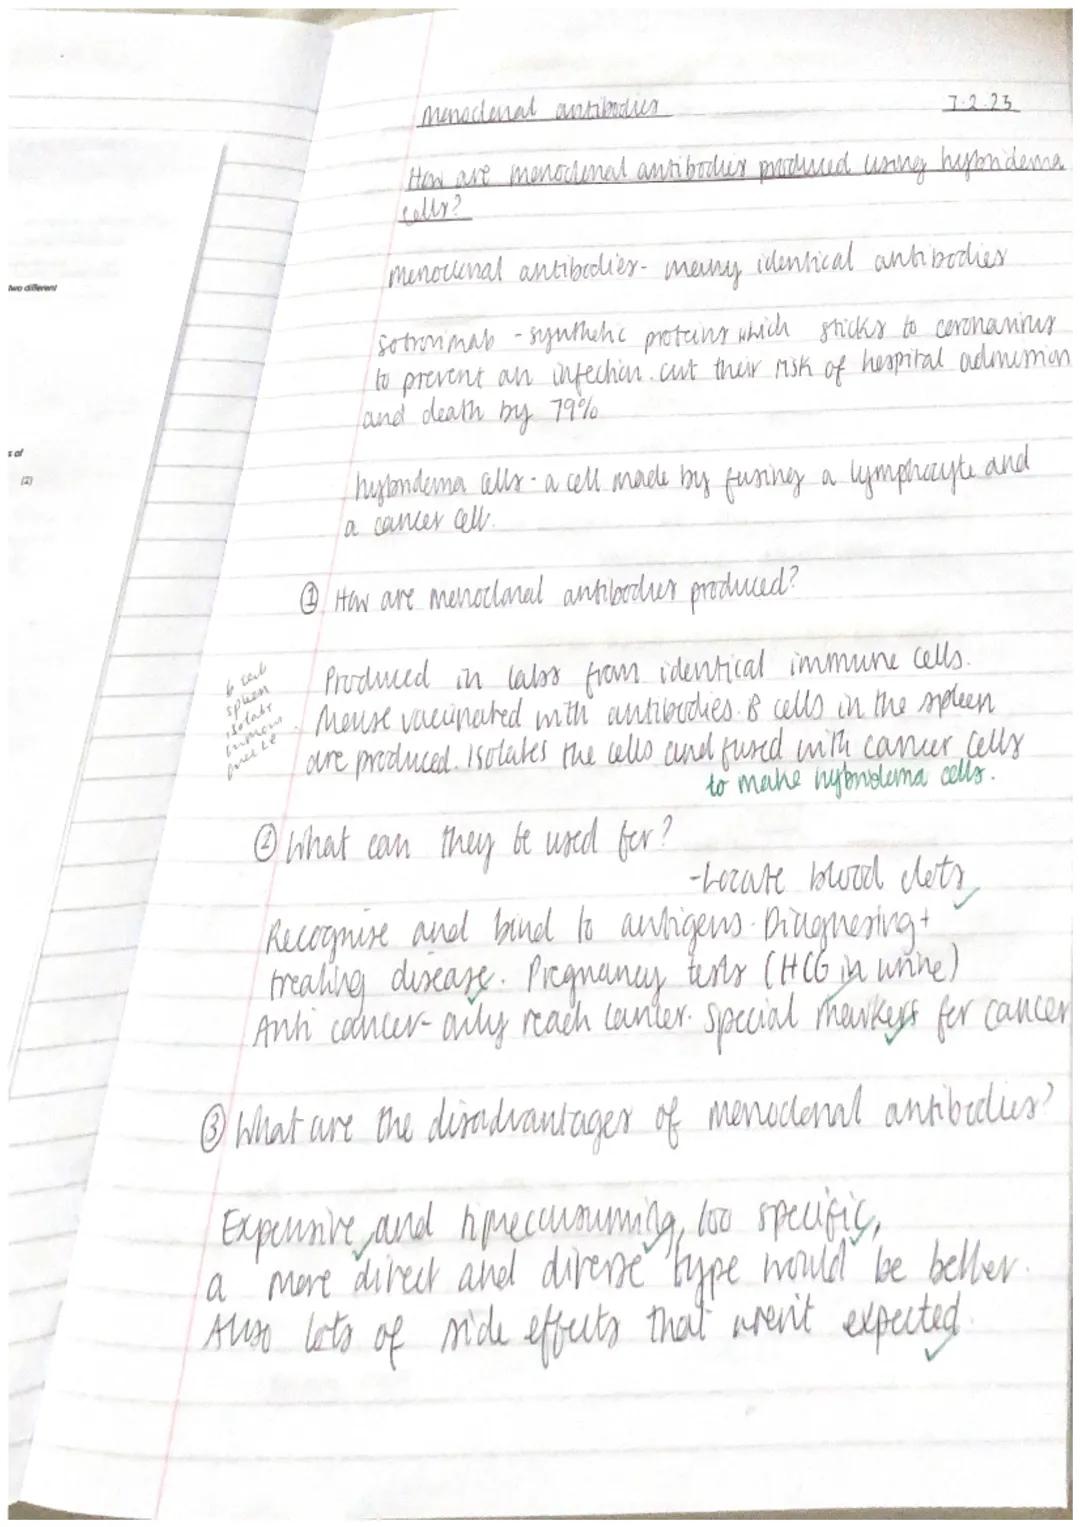 two different
s of
(2)
Monoclonal antibodies 7.2.23
How are monoclonal antibodies produced using hybridoma
cells?
monoclonal antibodies- many identical antibodies
sotrovimab - synthetic proteins which sticks to coronavirus
to prevent an infection. cut their risk of hospital admission
and death by 79%
hybridoma cells - a cell made by fusing a lymphocyte and
a cancer cell.
① How are monoclonal antibodies produced?
b cells
spleen
isolate
tumour
Produced in labs from identical immune cells.
Mouse vaccinated with antibodies. B cells in the spleen
are produced. Isolates the cells and fused with cancer cells
to make hybridoma cells.
② What can they be used for?
-Locate blood clots
Recognise and bind to antigens. Diagnosing +
treating disease. Pregnancy tests (HCG in urine)
Anti cancer- only reach cancer. special markers for cancer
③ What are the disadvantages of monoclonal antibodies?
Expensive and timeconsuming, too specific,
a more direct and diverse type would be better.
Also lots of side effects that aren't expected.